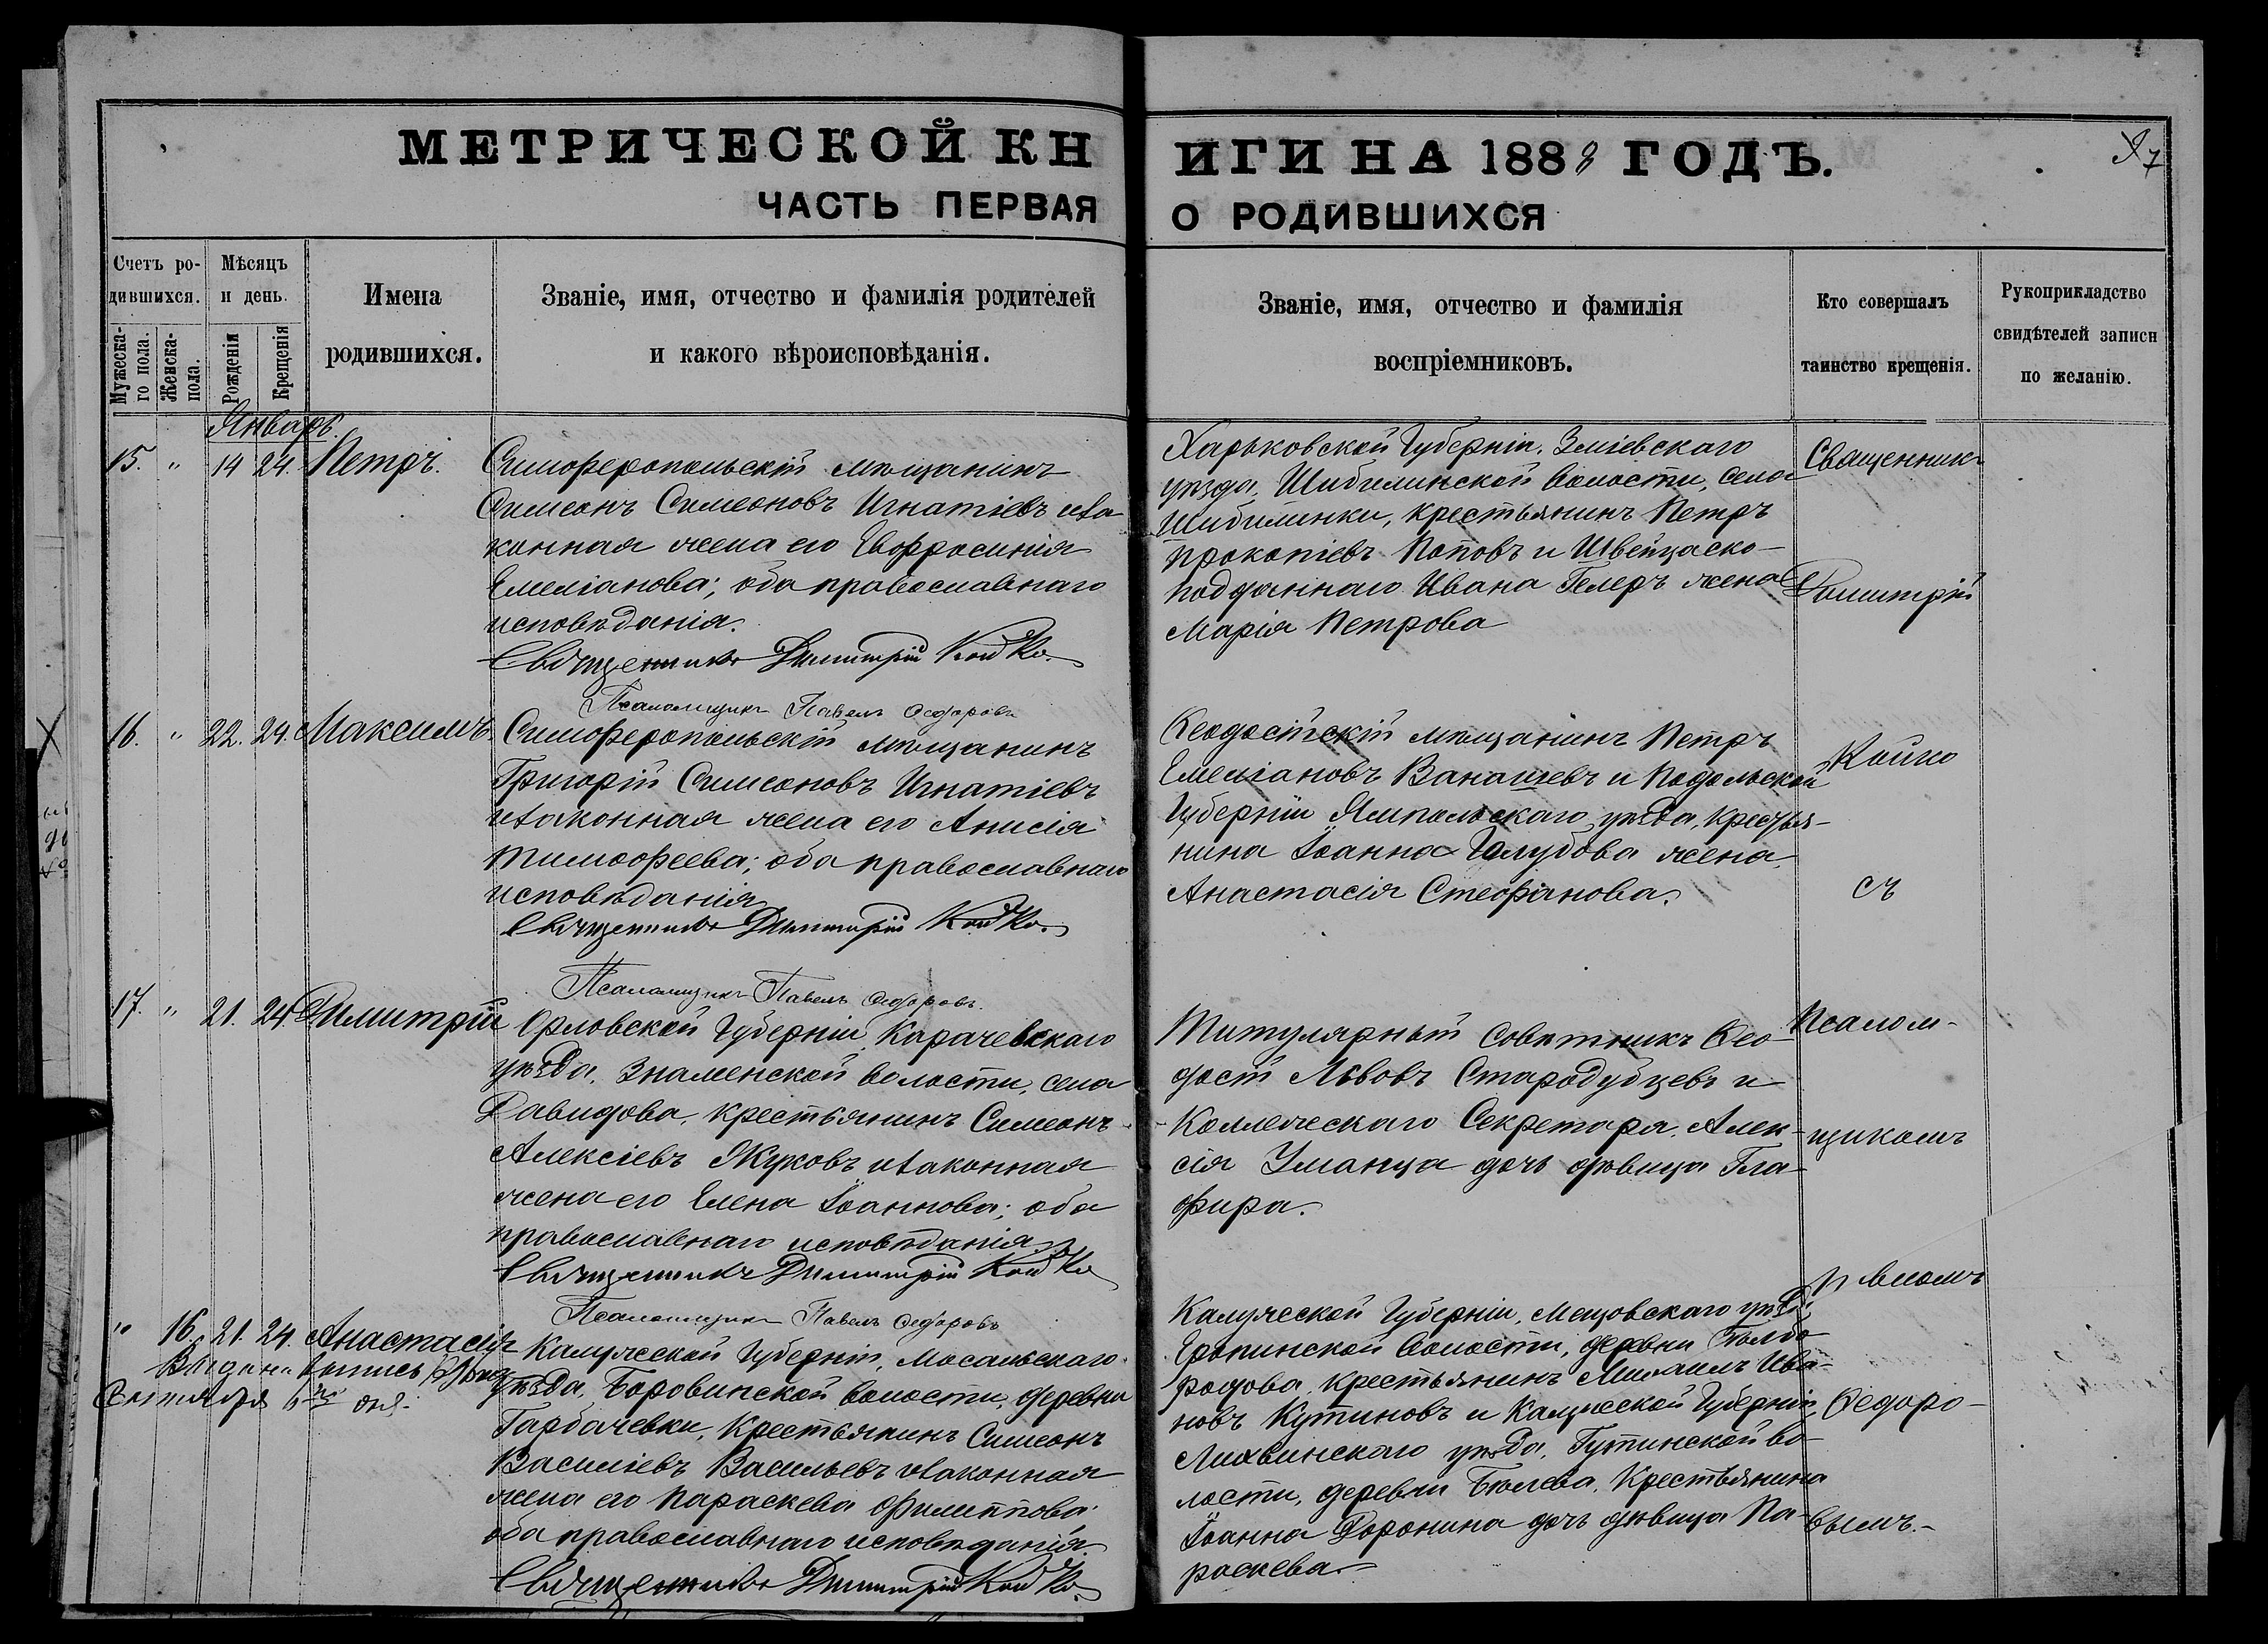 МЕТРИЧЕСКОЙ КН
ИГИ НА 1888 ГОДЪ.
ЧАСТЬ ПЕРВАЯ
О РОДИВШИХСЯ
Счетъ ро-
дившихся.
Мужеска-
го пола.
Женска-
пола.
Мѣсяцъ
и день.
Рожденія
Крещенія
Имена
родившихся.
Званіе, имя, отчество и фамилія родителей
и какого вѣроисповѣданія.
Званіе, имя, отчество и фамилія
воспріемниковъ.
Кто совершалъ
таинство крещенія.
Рукоприкладство
свидѣтелей записи
по желанію.
Январь.
15. " 14 24. Петръ.
Симферопольскій мѣщанинъ
Симеонъ Симеоновъ Игнатіевъ и за
конная жена его Евфросинія
Емеліанова; оба православнаго
исповѣданія.
Священникъ Димитрій Койко.
Псаломщикъ Павелъ Федоровъ
Харьковской Губерніи, Зміевскаго
уѣзда, Шибилинской волости, села
Шибилинки, крестьянинъ Петръ
Прокопіевъ Поповъ и Швейцаско-
подданнаго Ивана Гелеръ жена
Марія Петрова
16. " 22. 24. Максимъ.
Симферопольскій мѣщанинъ
Григорій Симеоновъ Игнатіевъ
и законная жена его Анисія
Тимофеева; оба православнаго
исповѣданія
Священникъ Димитрій Койко.
Псаломщикъ Павелъ Федоровъ.
Феодосійскій мѣщанинъ Петръ
Емеліановъ Ванашевъ и Подольской
Губерніи Ямпольскаго уѣзда, крестья-
нина Іоанна Голубова жена
Анастасія Стефанова.
17. " 21. 24. Димитрій
Орловской Губерніи, Карачевскаго
уѣзда, Знаменской волости, села
Давидова, крестьянинъ Симеонъ
Алексіевъ Жуковъ и законная
жена его Елена Іоаннова; оба
православнаго исповѣданія
Священникъ Димитрій Койко
Псаломщикъ Павелъ Федоровъ
Титулярный Совѣтникъ Фео-
досій Львовъ Стародубцевъ и
Коллежскаго Секретаря Алек-
сія Уманца дочь дѣвица Гла-
фира.
" 16. 21. 24. Анастасія
Выдана выпись
Сентября дня.
Калужской Губерніи, Мосальскаго
уѣзда, Боровинской волости, деревни
Гарбачевки, Крестьянинъ Симеонъ
Василіевъ Васильевъ и законная
жена его Параскева Филиппова
оба православнаго исповѣданія.
Священникъ Димитрій Койко.
Калужской Губерніи, Мещовскаго уѣзда,
волости, деревни
крестьянинъ Михаилъ Ива-
новъ Кутиновъ и Калужской Губерніи,
Лихвинскаго уѣзда, Гутинской во-
лости, деревни Бѣлева, Крестьянина
Іоанна Доронина дочь дѣвица Па-
раскева.
Священникъ
Димитрій
Койко
съ
Псалом-
щикомъ
Павломъ
Федоро-
вымъ.